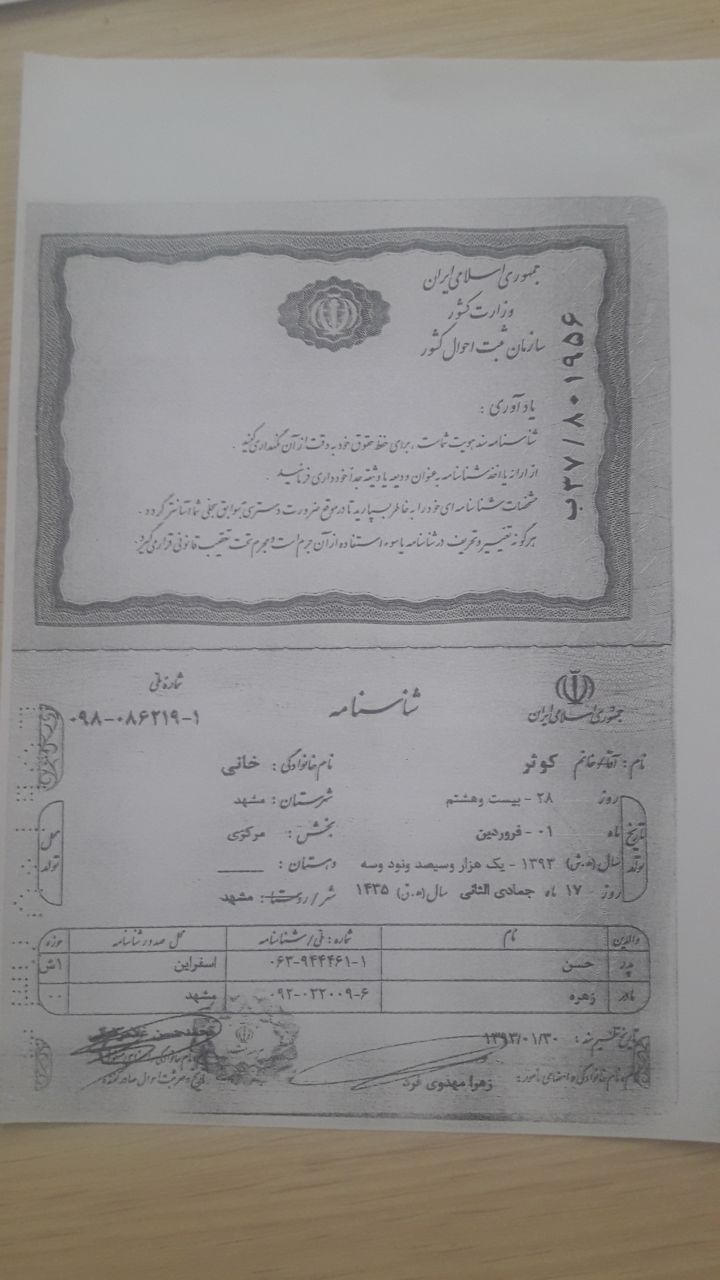 جمهوری اسلامی ایران
وزارت کشور
سازمان ثبت احوال کشور
ب۳۷/۸۰۱۹۵۶
یادآوری :
شناسنامه سند هویت شماست ، برای حفظ حقوق خود به دقت از آن نگهداری کنید .
از ارائه یا اخذ شناسنامه به عنوان ودیعه یا وثیقه جداً خودداری فرمائید .
مشخصات شناسنامه ای خود را به خاطر بسپارید تا در موقع ضرورت دسترسی به سوابق سجلی شما آسانتر گردد .
هرگونه تغییر و تحریف در شناسنامه یا سوء استفاده از آن جرم است و مجرم تحت تعقیب قانونی قرار می گیرد.
جمهوری اسلامی ایران
شناسنامه
شماره ملی
۰۹۸-۰۸۶۲۱۹-۱
نام : آقا/خانم کوثر نام خانوادگی : خانی
تاریخ تولد
روز ۲۸ - بیست وهشتم
ماه ۰۱ - فروردین
سال (ه.ش) ۱۳۹۳ - یک هزار وسیصد ونود وسه
روز ۱۷ ماه جمادی الثانی سال (ه.ق) ۱۴۳۵
محل تولد
شهرستان : مشهد
بخش : مرکزی
دهستان :
شهر/روستا : مشهد
والدین نام شماره : ملی/شناسنامه محل صدور شناسنامه حوزه
پدر حسن ۰۶۳-۹۴۴۴۶۱-۱ اسفراین ۱ش
مادر زهره ۰۹۲-۰۲۲۰۰۹-۶ مشهد ۰۰
تاریخ تنظیم سند : ۱۳۹۳/۰۱/۳۰
نام و نام خانوادگی و امضای مامور : زهرا مهدوی فرد